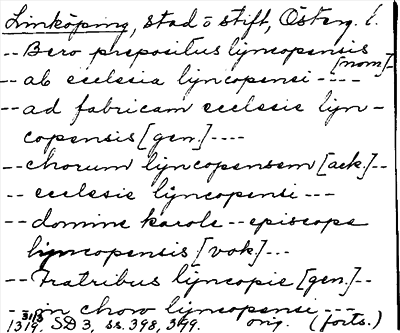 Linköping, stad o stift, Österg. l.
-- Bero prepositus lyncopensis
[nom]-
-- ab ecclesia lyncopensi ----
-- ad fabricam ecclesie lyn-
copensis [gen.] ----
-- chorum lyncopensem [ack.]--
-- ecclesie lyncopensi ---
-- domine karole -- episcope
lyncopensis [vok.]---
-- Fratribus lyncopie [gen.]--
-- in choro lyncopensi ---
31/3 1319. SD 3, ss. 398, 399. orig. (forts.)